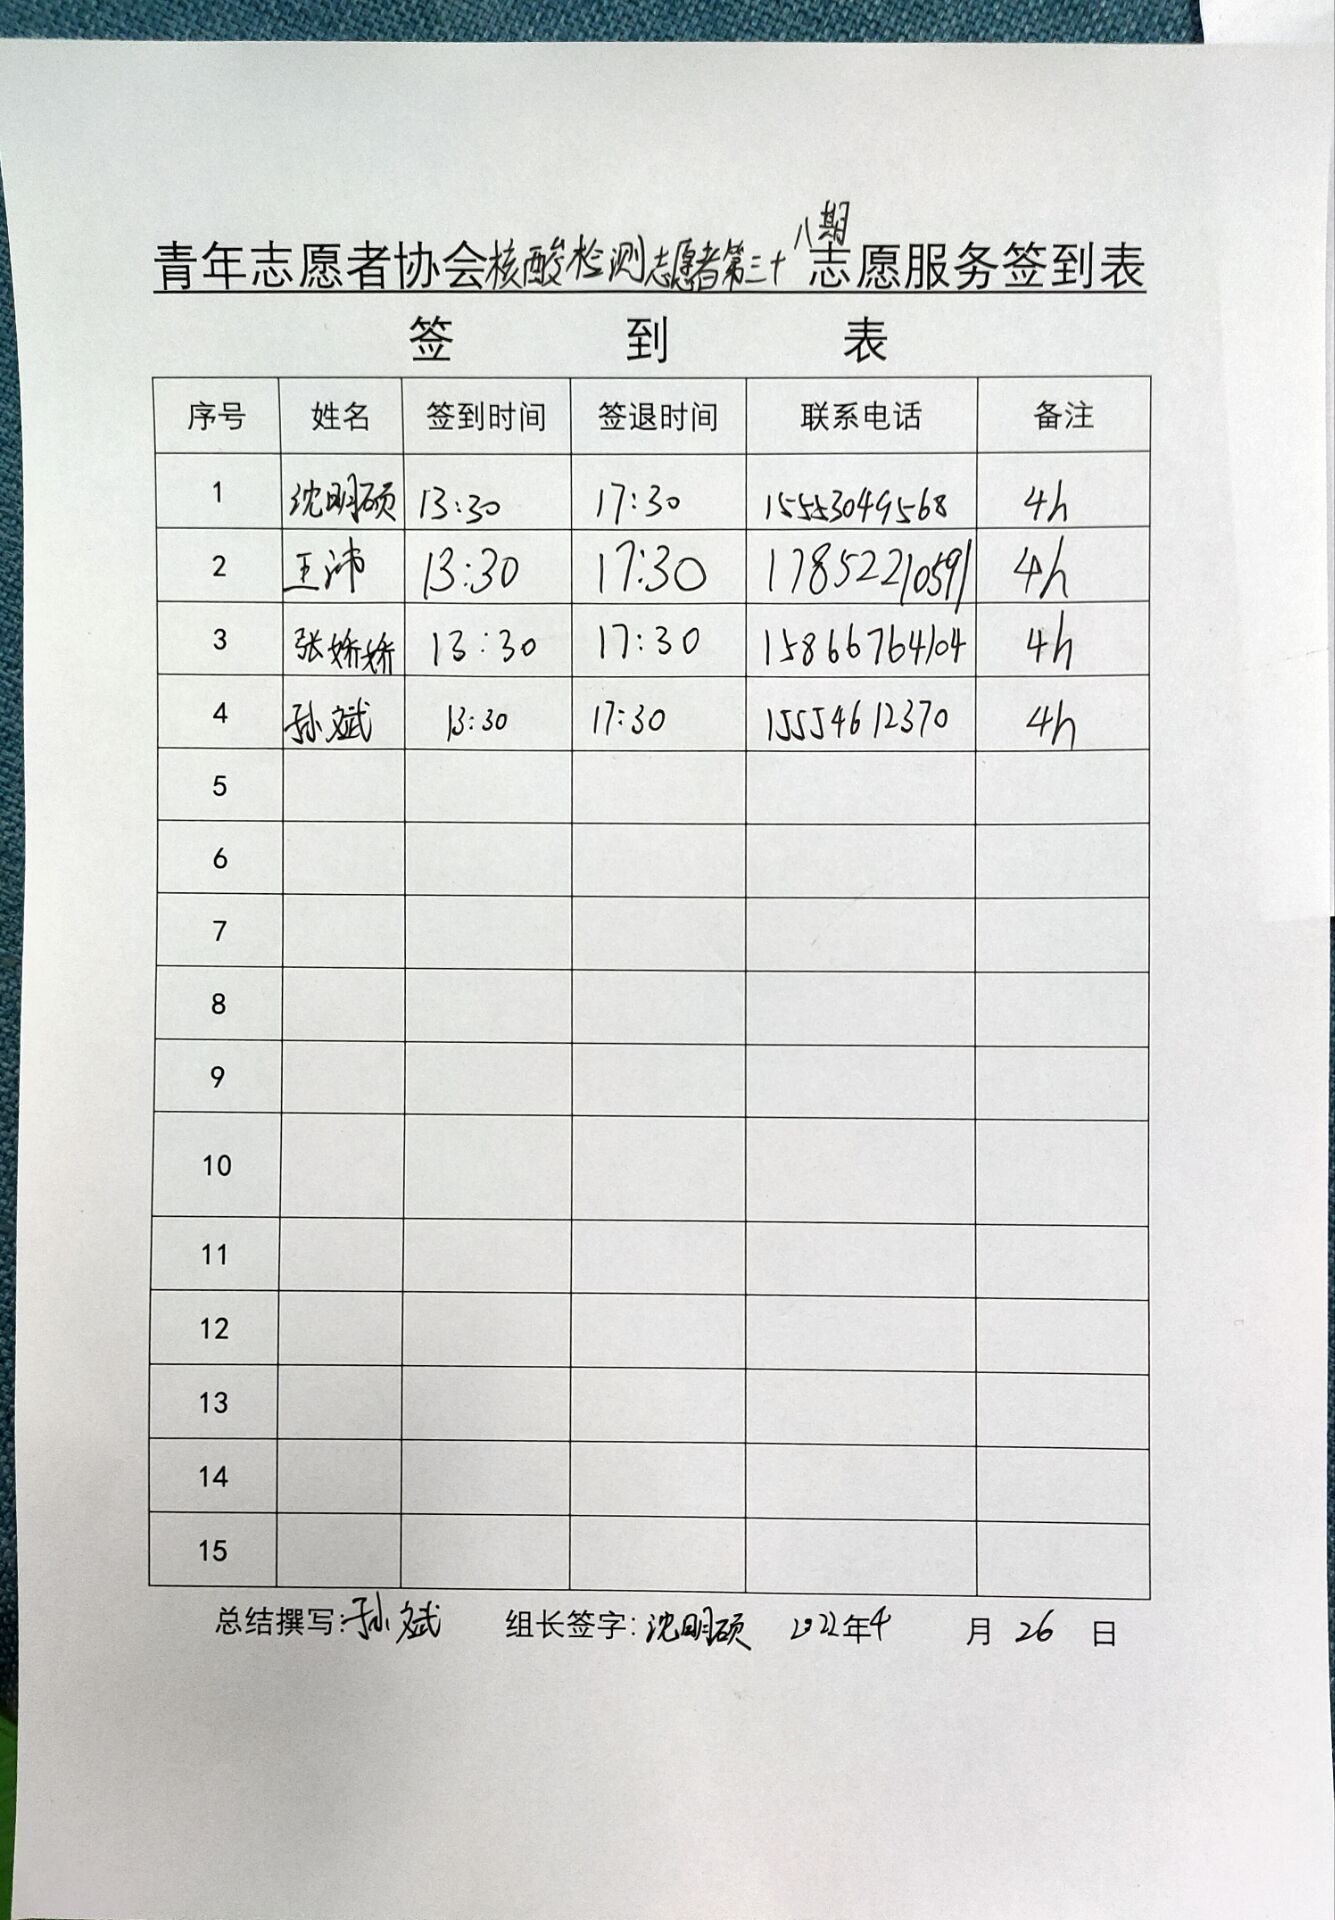 青年志愿者协会核酸检测志愿者第三十八期志愿服务签到表
签 到 表
序号 姓名 签到时间 签退时间 联系电话 备注
1 沈明硕 13:30 17:30 15553049568 4h
2 王沛 13:30 17:30 17852210591 4h
3 张娇娇 13:30 17:30 15866764104 4h
4 孙斌 13:30 17:30 15554612370 4h
5
6
7
8
9
10
11
12
13
14
15
总结撰写:孙斌 组长签字:沈明硕 2022年4月26日